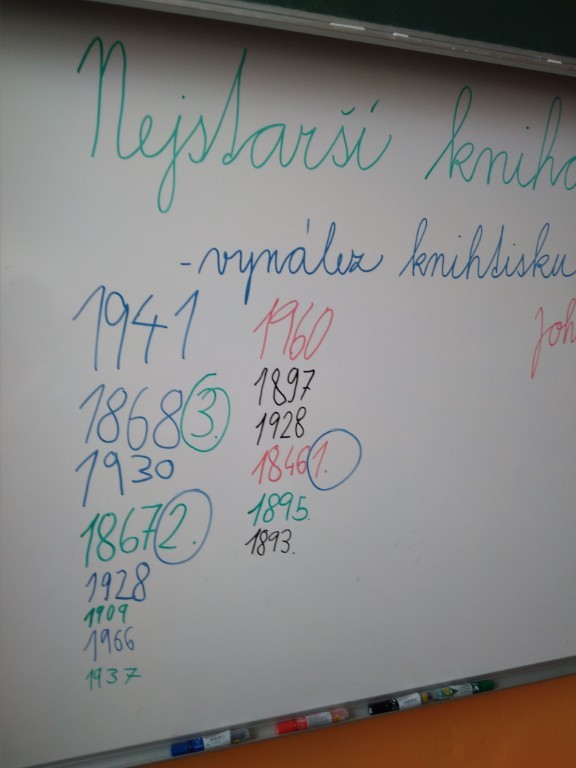 Nejstarší kniha
-vynález knihtisku
Joh
1941
1868 3.
1930
1867 2.
1928
1909
1966
1937
1960
1897
1928
1846 1.
1895.
1893.